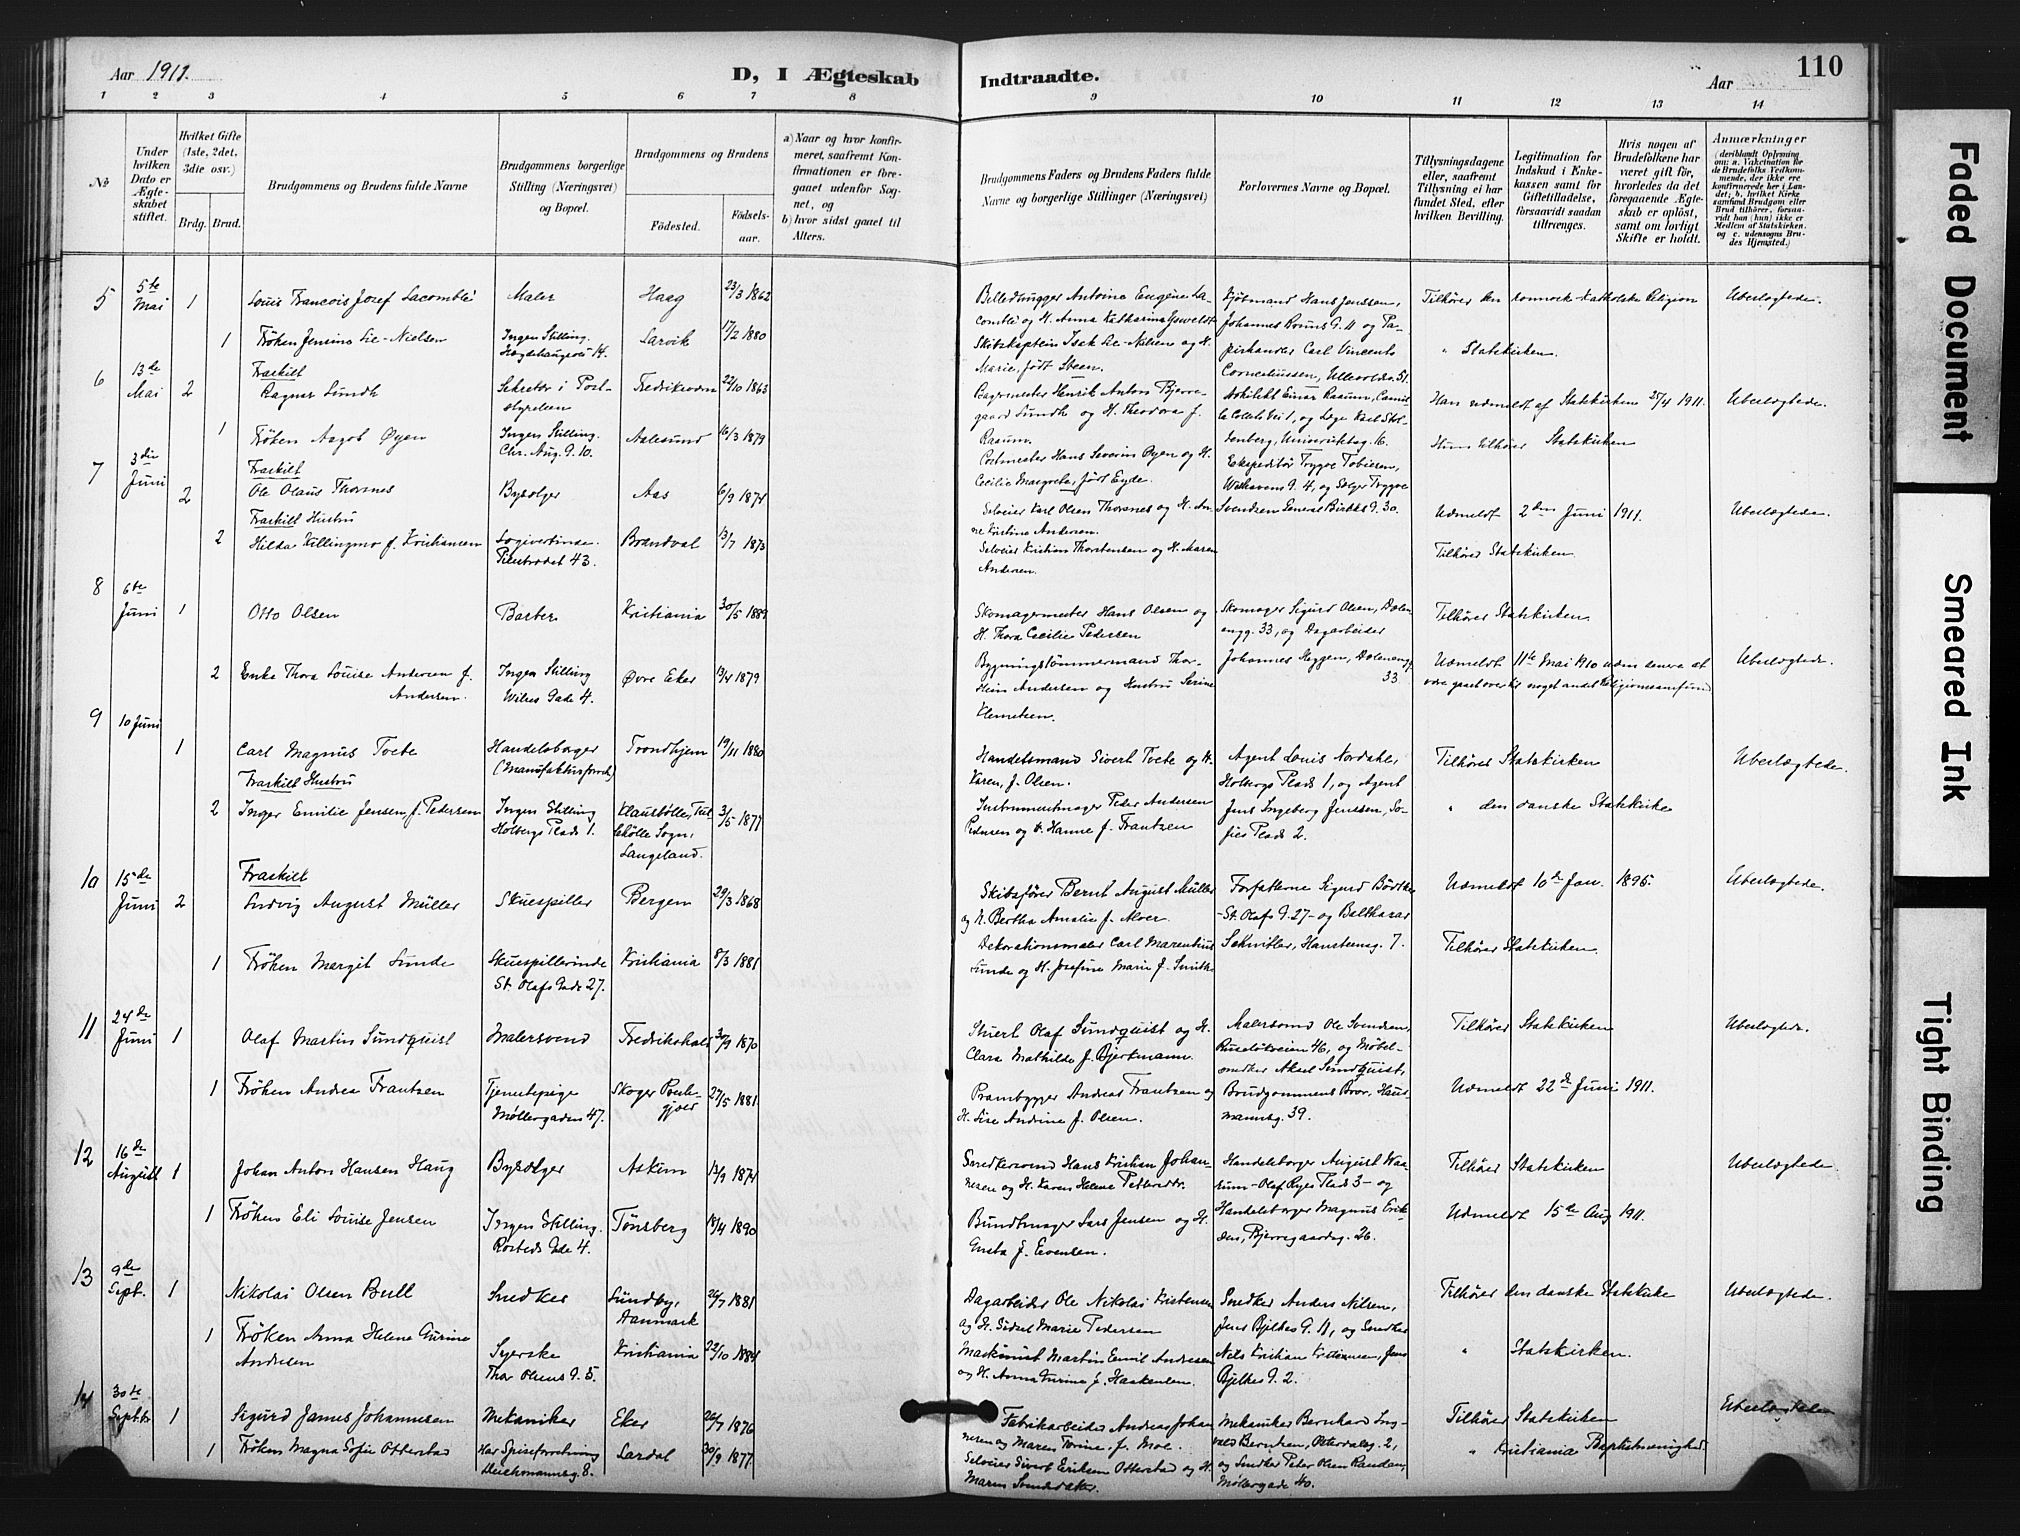 Aar 1911.
D, I Ægteskab
Indtraadte.
Aar
110
1 2 3 4 5 6 7 8 9 10 11 12 13 14
No
Under hvilken Dato er Ægteskabet stiftet.
Hvilket Gifte (1ste, 2det, 3die osv.)
Brdg. Brud.
Brudgommens og Brudens fulde Navne
Brudgommens borgerlige Stilling (Næringsvei) og Bopæl.
Brudgommens og Brudens
Fødested.
Fødsels-aar.
a) Naar og hvor konfirmeret, saafremt Konfirmationen er foregaaet udenfor Sognet, og
b) hvor sidst gaaet til Alters.
Brudgommens Faders og Brudens Faders fulde Navne og borgerlige Stillinger (Næringsvei)
Forlovernes Navne og Bopæl.
Tillysningsdagene eller, saafremt Tillysning ei har fundet Sted, efter hvilken Bevilling.
Legitimation for Indskud i Enkekassen samt for Giftetilladelse, forsaavidt saadan tiltrænges.
Hvis nogen af Brudefolkene har været gift før, hvorledes da det foregaaende Ægteskab er opløst, samt om lovligt Skifte er holdt.
Anmærkninger
5 5te Mai 1 Louis Francois Josef Lacomblé Maler Haag 23/3 1862
Billedhugger Antoine Eugène Lacomblé og H. Anna Katharina
Kjøbmand Hans Jenssen, Johannes Bruns G. 11 og Papirhandler Carl Vincents Corneliussen, Ullevoldsv. 51.
Tilhører den romersk-katholske Religion Ubeslægtede.
1 Frøken Jensine Lie-Nielsen Ingen Stilling. Hegdehaugsvei 14. Larvik 17/2 1880
Skibskaptein Isak Lie-Nielsen og H. Marie, født Steen.
" Statskirken.
6 13de Mai 2 Fraskilt Ragnar Lundh Sekretær i Poststyrelsen Fredriksværn 22/10 1863
Lagermester Henrik Anton Bjerregaard Lundh og H. Theodora f. Rasum.
Arkitekt Einar Rasum, Camilla Colletts Vei 1, og Læge Karl Stoltenberg, Universitetsg. 16.
Han udmeldt af Statskirken 25/4 1911. Ubeslægtede.
1 Frøken Aagot Øyen Ingen Stilling. Chr. Aug. G. 10. Aalesund 16/3 1879
Postmester Hans Severin Øyen og H. Cecilie Margrete, født Eyde.
Hun tilhører Statskirken
7 3die Juni 2 Fraskilt Ole Olaus Thorsnes Bysælger Aas 6/9 1874
Selveier Karl Olsen Thorsnes og H. Anne Kristine Andersen.
Ekspeditør Trygve Tobiesen, Welhavens G. 4, og Sælger Trygve Svendsen General Birchs G. 30.
Udmeldt 2den Juni 1911. Ubeslægtede.
2 Fraskilt Hustru Hilda Killingmo f. Kristiansen Logivertinde. Pilestrædet 43. Brandval 13/7 1873
Selveier Kristian Thorstensen og H. Maren Andersen.
Tilhører Statskirken.
8 6te Juni 1 Otto Olsen Barber Kristiania 30/5 1889
Skomagermester Hans Olsen og H. Thora Cecilie Pedersen
Skomager Sigurd Olsen, Dælenengg. 33, og Dagarbeider Johannes Heggen, Dælenengg. 33
Tilhører Statskirken.
2 Enke Thora Louise Andersen f. Andersen. Ingen Stilling Wilses Gade 4. Øvre Eker 13/4 1879
Bygningstømmermand Thorstein Andersen og Hustru Serine Klemetsen.
Udmeldt 11te Mai 1910 uden senere at være gaaet over til noget andet Religionssamfund Ubeslægtede.
9 10 Juni 1 Carl Magnus Tvete Handelsborger (Manufakturforretn.) Trondhjem 19/11 1880
Handelsmand Sivert Tvete og H. Karen, f. Olsen.
Agent Louis Nordahl, Holbergs Plads 1, og Agent Jens Ingeborg Jenssen, Sofies Plads 2.
Tilhører Statskirken Ubeslægtede.
2 Fraskilt Hustru Inger Emilie Jensen, f. Pedersen Ingen Stilling Holbergs Plads 1. Klausbølle, Sogn, Langeland. 3/5 1877
Instrumentmager Peder Andersen Pedersen og H. Hanne f. Frantzen
" den danske Statskirke
10 15de Juni 2 Fraskilt Ludvig August Müller Skuespiller Bergen 29/3 1868
Skibsfører Bernt August Müller og H. Bertha Amalie f. Alver.
Forfatterne Sigurd Bødtker -St. Olafs G. 27- og Balthazar Schnitler, Hansteensg. 7.
Udmeldt 10de Jan. 1895. Ubeslægtede.
1 Frøken Margit Sunde Skuespillerinde St. Olafs Gade 27. Kristiania 8/3 1881
Dekorationsmaler Carl Marentius Sunde og H. Josefine Marie f. Smith.
Tilhører Statskirken.
11 24de Juni 1 Olaf Martin Sundquist Malersvend Fredrikshald 30/9 1870
Stuert Olaf Sundquist og H. Clara Mathilde f. Bjerkmann.
Malersvend Ole Svendsen, Ruseløkveien 46, og Møbelsnedker Aksel Sundquist, Brudgommens Bror, Hausmannsg. 39.
Tilhører Statskirken Ubeslægtede.
1 Frøken Andrea Frantzen Tjenestepige Møllergaden 47. Skoger 27/5 1881
Prambygger Andreas Frantzen og H. Lise Andrine f. Olsen.
Udmeldt 22de Juni 1911.
12 16de August 1 Johan Anton Hansen Haug Bysælger Askim 13/9 1874
Snedkersvend Hans Kristian Johannesen og H. Karen Helene
Handelsborger August -Olaf Ryes Plads 3- og Handelsborger Magnus Eriksen, Bjerregaardsg. 26.
Tilhører Statskirken Ubeslægtede.
1 Frøken Eli Louise Jensen Ingen Stilling. Rosteds Gde 4. Tønsberg 18/4 1890
Bundtmager Lars Jensen og H. Gusta f. Evensen.
Udmeldt 15de Aug 1911.
13 9de Sept. 1 Nikolai Olsen Bull Snedker Sundby, Danmark 26/7 1881
Dagarbeider Ole Nikolai Kristensen og H. Sidsel Marie Pedersen
Snedker Anders Nilsen, Jens Bjelkes G. 11, og Snedker Nils Kristian Kristensen, Jens Bjelkes G. 2.
Tilhører den danske Statskirke Ubeslægtede.
1 Frøken Anna Helene Gurine Andresen Syerske Thor Olsens G. 5. Kristiania 22/10 1884
Maskinist Martin Emil Andresen og H. Anna Gurine f. Haakensen.
" Statskirken.
14 30te Septbr 1 Sigurd James Johannesen Mekaniker Eker 26/7 1876
Fabrikarbeider Andreas Johannesen og Maren Torine f. Moe.
Mekaniker Bernhard Ingvald Berntsen, Osterdalsg. 2, og Snedker Peter Olsen Randan, Møllergade 40.
Tilhører Statskirken Ubeslægtede
1 Frøken Magna Sofie Otterstad Har Spiseforretning Deichmannsg. 8. Lardal 30/9 1877
Selveier Sivert Eriksen Otterstad og H. Maren
" Kristiania Baptistmenighed.
Faded Document
Smeared Ink
Tight Binding